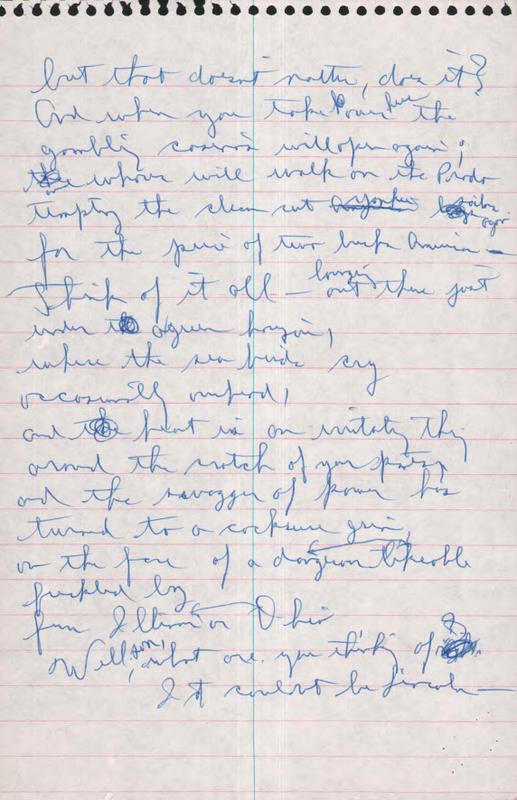 but that doesn't matter, does it?
And when you take over here the
gambling casinos will open again;
the whores will walk on the Prado
tempting the clean cut sailor boys again
for the price of two bucks American —
Think of it all — lounging out there just
under a green horizon,
where the sea birds cry
occasionally overhead,
and the heat is an irritating thing
around the crotch of your pants,
and the swagger of power has
turned to a cocksure grin,
on the face of a dangerous likeable
freckled boy
from Illinois or Ohio
Well, son, what are you thinking of?
It couldn't be Lincoln —